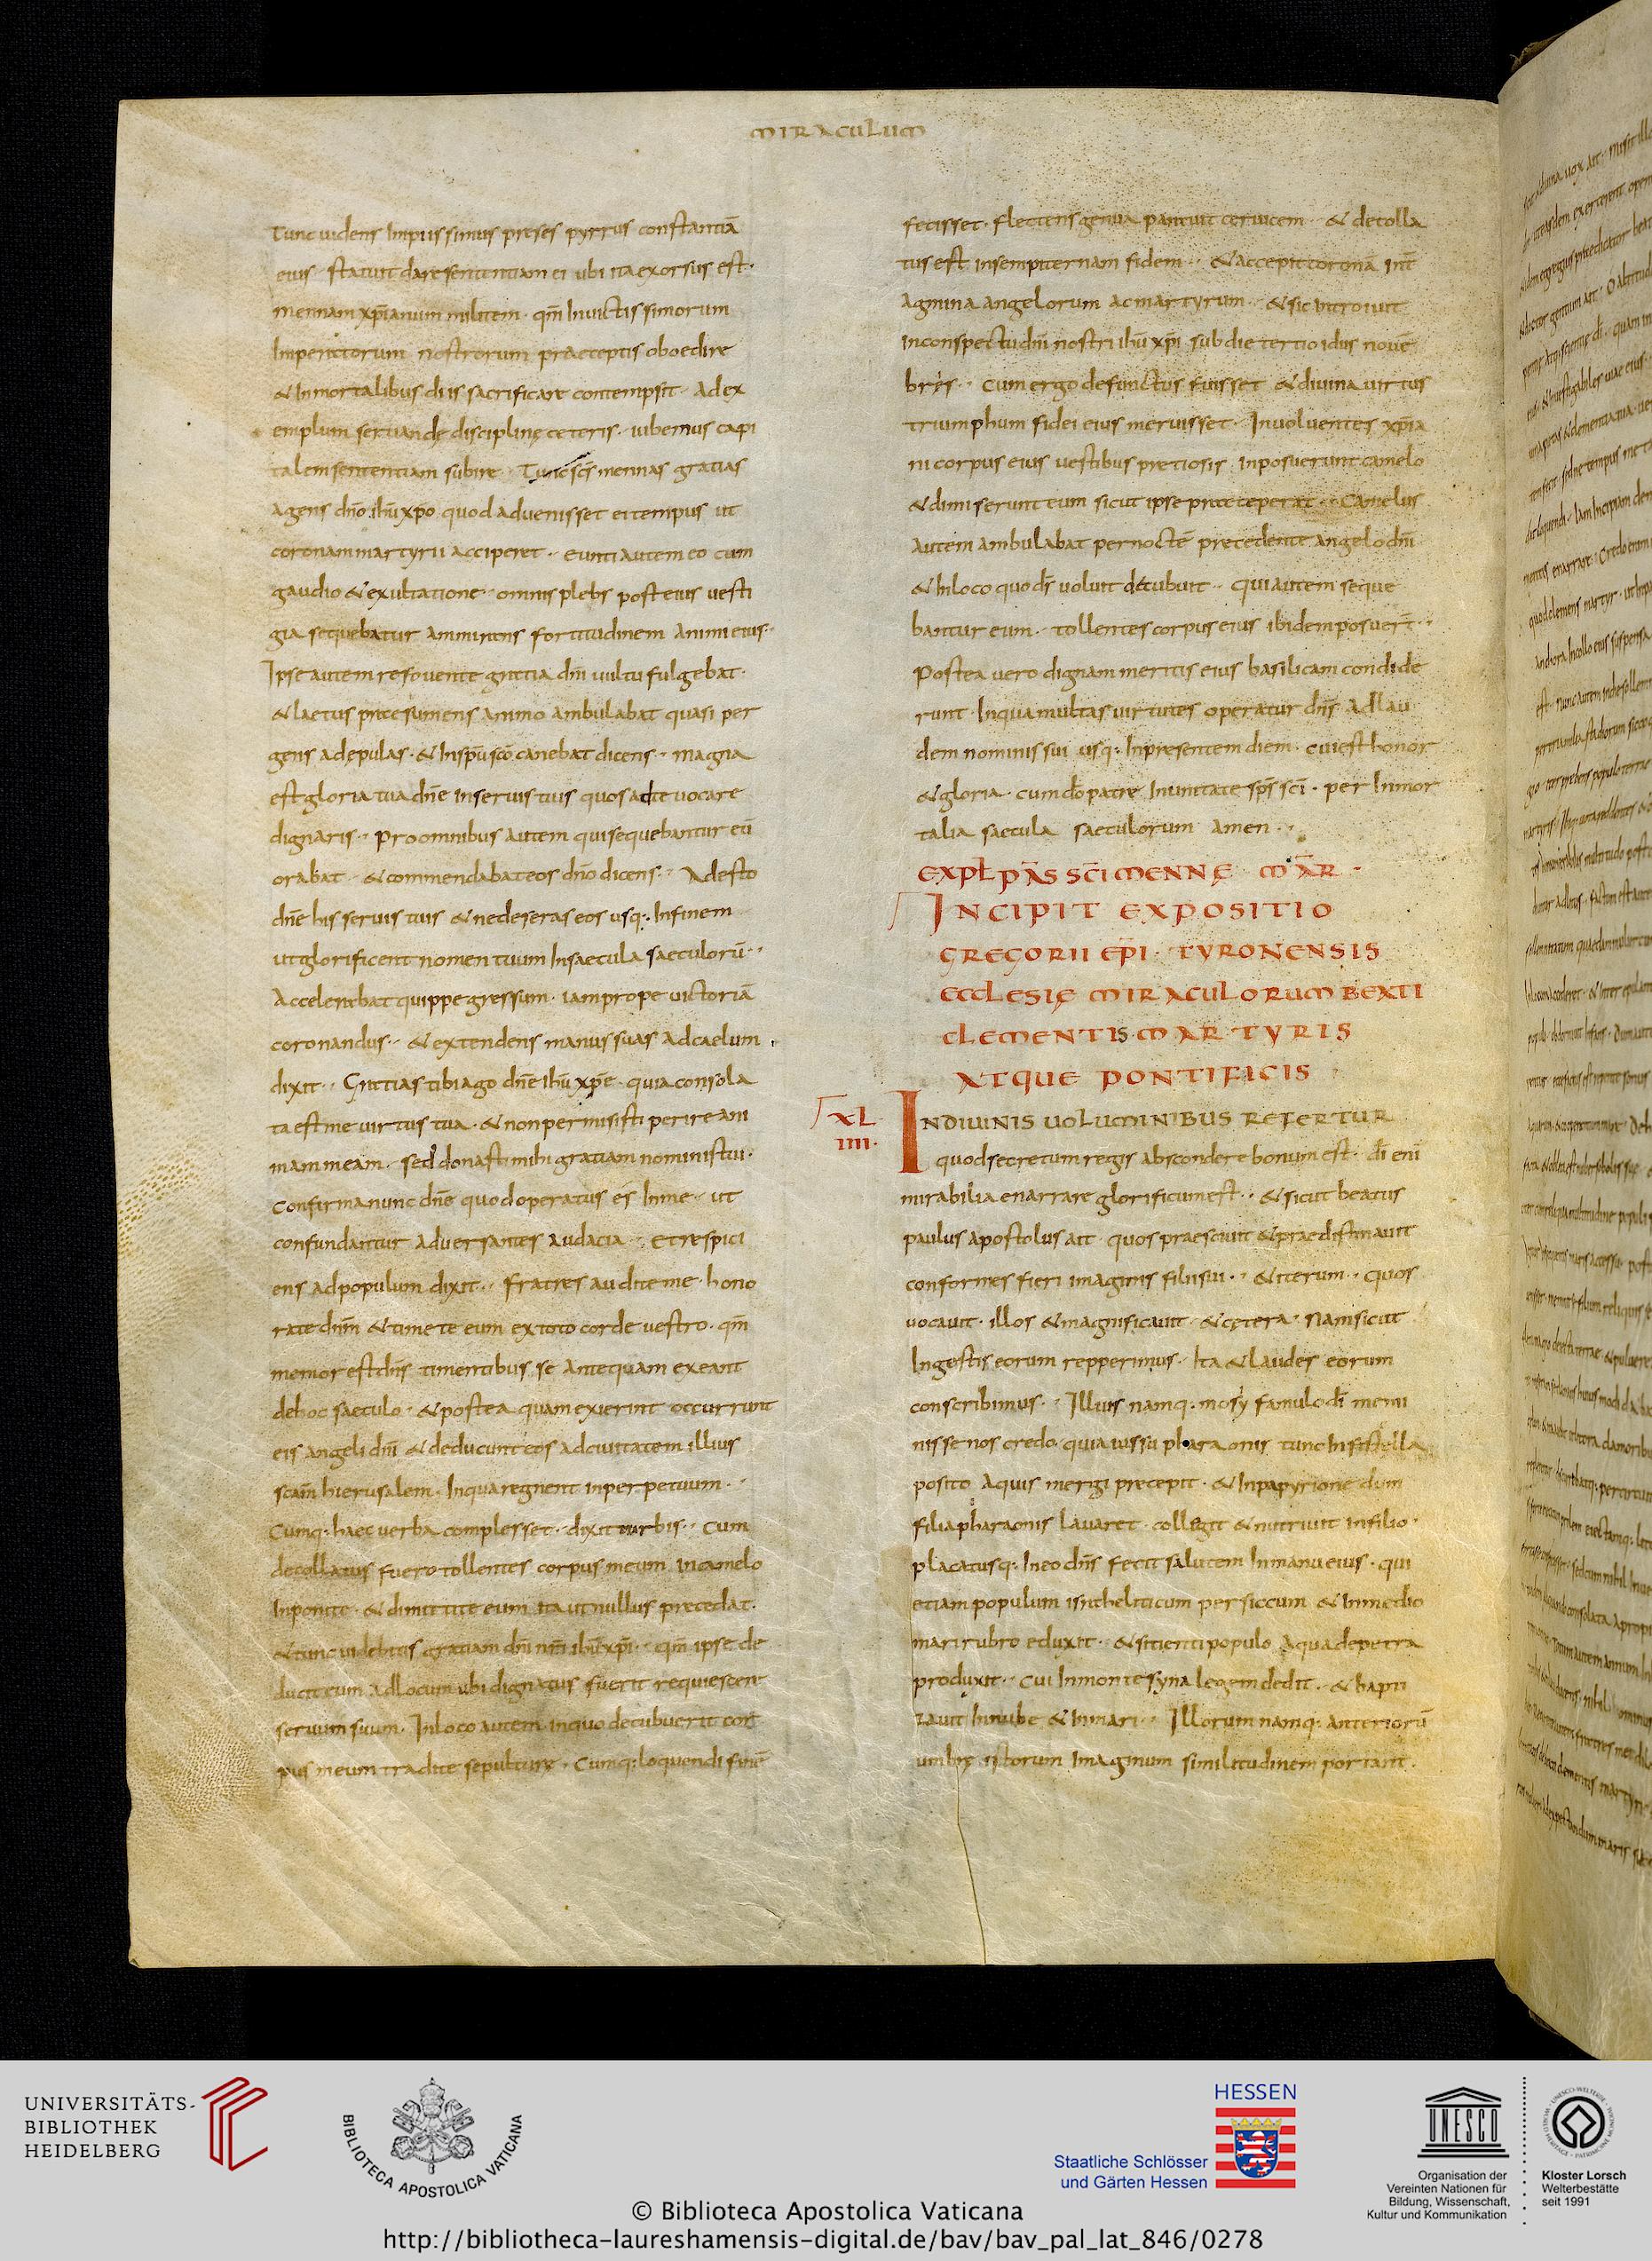 MIRACULUM
Tunc uidens Impiissimus preses pyrrus constantiā
eius statuit dare sententiam ei ubi ita exorsus est.
mennam xp̄ianum militem. qm̄ Inuictissimorum
Imperatorum nostrorum praeceptis oboedire
& Inmortalibus diis sacrificare contempsit. Ad ex
emplum seruandę disciplinę ceteris. iubemus capi
talem sententiam subire. Tunc sc̄s mennas gratias
agens dn̄o ihū xp̄o quod aduenisset ei tempus ut
coronam martyrii acciperet. eunti autem eo cum
gaudio & exultatione. omnis plebs post eius uesti
gia sequebatur ammirans fortitudinem animi eius.
Ipse autem refouente gratia dn̄i uultu fulgebat.
& laetus praesumens animo ambulabat quasi per
gens ad epulas. & In sp̄u sc̄o canebat dicens. magna
est gloria tua dn̄e in seruis tuis quos ad te uocare
dignaris. Pro omnibus autem qui sequebantur eū
orabat. & commendabat eos dn̄o dicens. Adesto
dn̄e his seruis tuis & ne deseras eos usq: In finem
ut glorificent nomen tuum In saecula saeculorū.
Accelerabat quippe gressum. iam prope uictoriā
coronandus. & extendens manus suas ad caelum
dixit. Gratias tibi ago dn̄e ihū xp̄e. quia consola
ta est me uirtus tua. & non permisisti perire ani
mam meam. sed donasti mihi gratiam nominis tui.
Confirma nunc dn̄e quod operatus es In me. ut
confundantur aduersantes audacia. Et respici
ens ad populum dixit. Fratres audite me. hono
rate dn̄m & timete eum ex toto corde uestro. qm̄
memor est dn̄s timentibus se Antequam exeant
de hoc saeculo. & postea quam exierint occurrunt
eis angeli dn̄i & deducunt eos ad ciuitatem illius
scam̄ hierusalem. In qua regnent in perpetuum.
Cumq: haec uerba complesset. dixit turbis. Cum
decollatus fuero tollentes corpus meum in camelo
Inponite. & dimittite eum ita ut nullus precedat.
& tunc uidebitis gratiam dn̄i nr̄i ihū xp̄i. qm̄ ipse de
ducit eum ad locum ubi dignatus fuerit requiescere
seruum suum. In loco autem in quo decubuerit cor
pus meum tradite sepulturę. Cumq: loquendi finē
fecisset. flectens genua paruit ceruicem. & decolla
tus est in sempiternam fidem. & accepit coronā Int̄
agmina angelorum ac martyrum. & sic introiuit
in conspectu dn̄i nostri ihū xp̄i sub die tertio idus nouē
bres. Cum ergo defunctus fuisset & diuina uirtus
triumphum fidei eius meruisset. Inuoluentes xp̄ia
ni corpus eius uestibus pretiosis inposuerunt camelo
& dimiserunt eum sicut ipse praeceperat. Camelus
autem ambulabat per noctē precedente angelo dn̄i
& In loco quo ds̄ uoluit decubuit. Qui autem seque
bantur eum. tollentes corpus eius ibidem posuer̄t.
Postea uero dignam meritis eius basilicam condide
runt. In qua multas uirtutes operatur dn̄s Ad lau
dem nominis sui usq: In presentem diem. cui est honor
& gloria. cum dō patre In unitate sp̄s sc̄i. per Inmor
talia saecula saeculorum amen.
EXPŁ PAS̄ SC̄I MENNĘ MĀR.
INCIPIT EXPOSITIO
GREGORII EPĪ. TYRONENSIS
ECCLESIĘ MIRACULORUM BEATI
CLEMENTIS MARTYRIS
ATQUE PONTIFICIS
XL
IIII.
IN DIUINIS UOLUMINIBUS REFERTUR
quod secretum regis abscondere bonum est. dī eni
mirabilia enarrare glorificum est. & sicut beatus
paulus apostolus ait. quos praesciuit & praedistinauit
conformes fieri imaginis filii sui. & iterum. quos
uocauit. illos & magnificauit. & cętera. Nam sicut
In gestis eorum repperimus. Ita & laudes eorum
conscribimus. Illius namq: mosy famulo dī memi
nisse nos credo. quia iussu pharaonis tunc In fistella
posito Aquis mergi precepit. & In papyrione dum
filia pharaonis lauaret. collegit & nutriuit in filio.
placatusq: In eo dn̄s fecit salutem In manu eius. qui
etiam populum israheliticum per siccum & In medio
mari rubro eduxit. & sitienti populo Aqua de petra
produxit. Cui In monte syna legem dedit. & bapti
zauit In nube & In mari. Illorum namq: anteriorū
umbrę istorum Imaginum similitudinem portant.
UNIVERSITÄTS-
BIBLIOTHEK
HEIDELBERG
BIBLIOTECA APOSTOLICA VATICANA
HESSEN
Staatliche Schlösser
und Gärten Hessen
UNESCO
Organisation der
Vereinten Nationen für
Bildung, Wissenschaft,
Kultur und Kommunikation
Kloster Lorsch
Welterbestätte
seit 1991
© Biblioteca Apostolica Vaticana
http://bibliotheca-laureshamensis-digital.de/bav/bav_pal_lat_846/0278